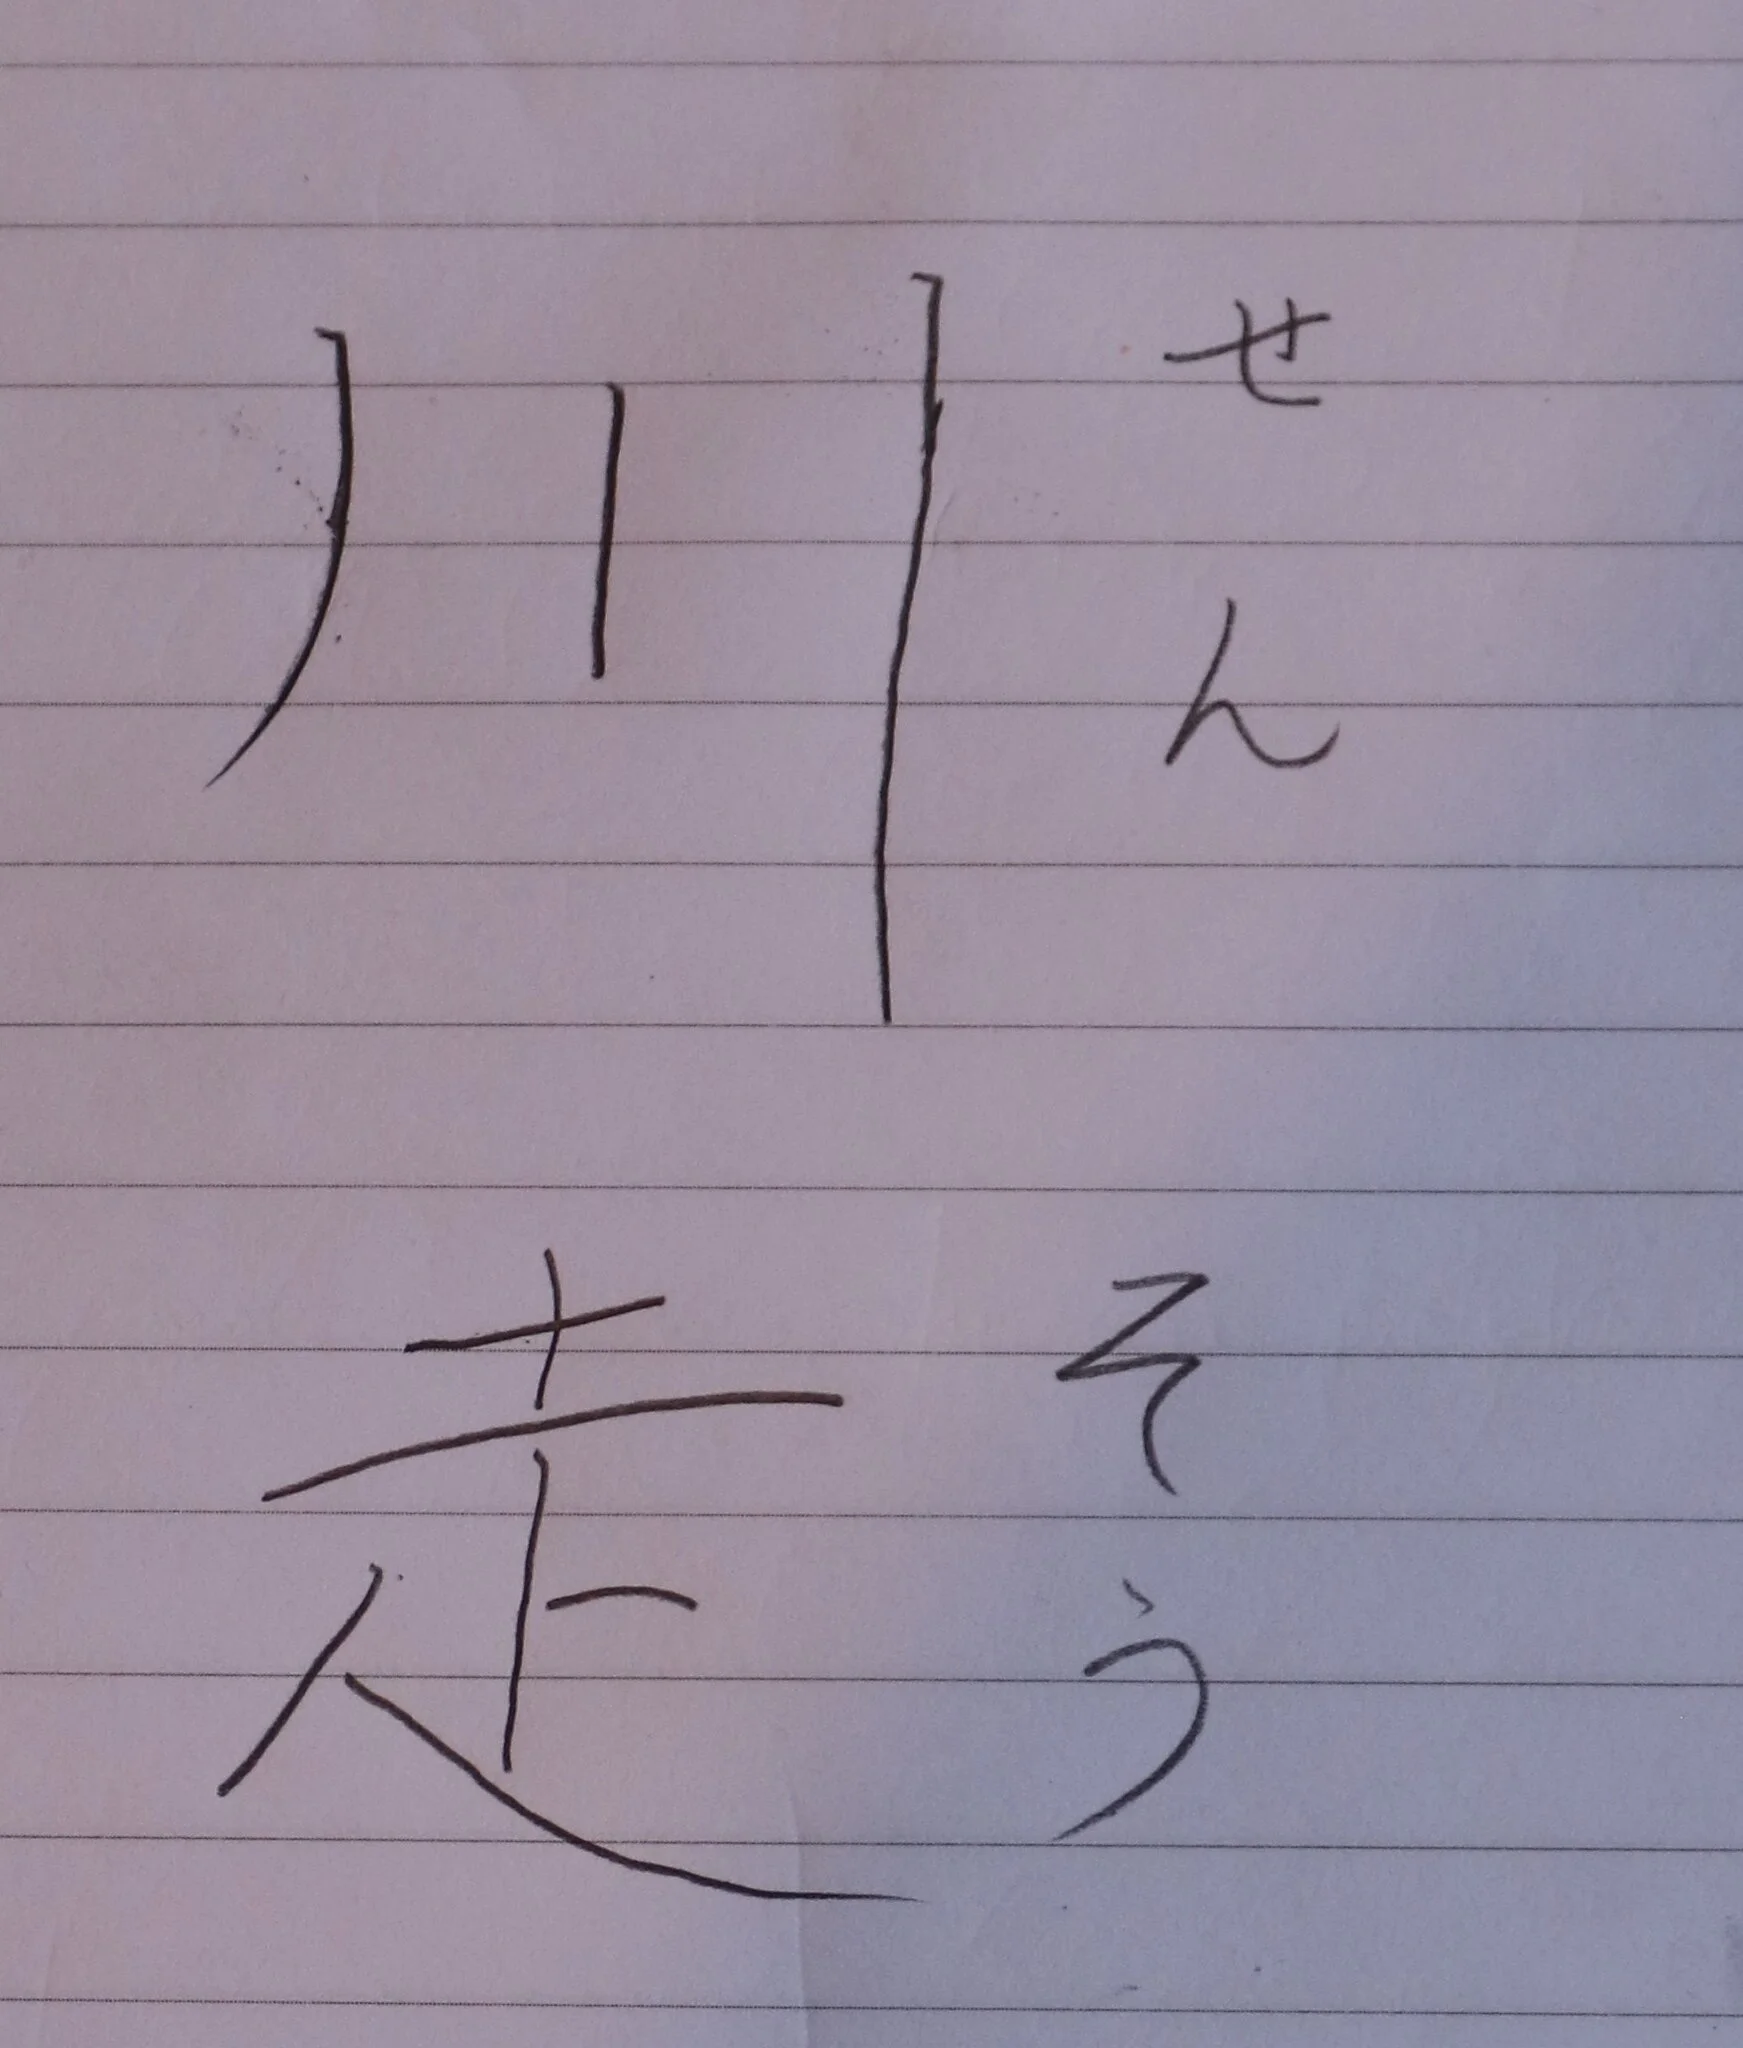 川 せん
走 そう